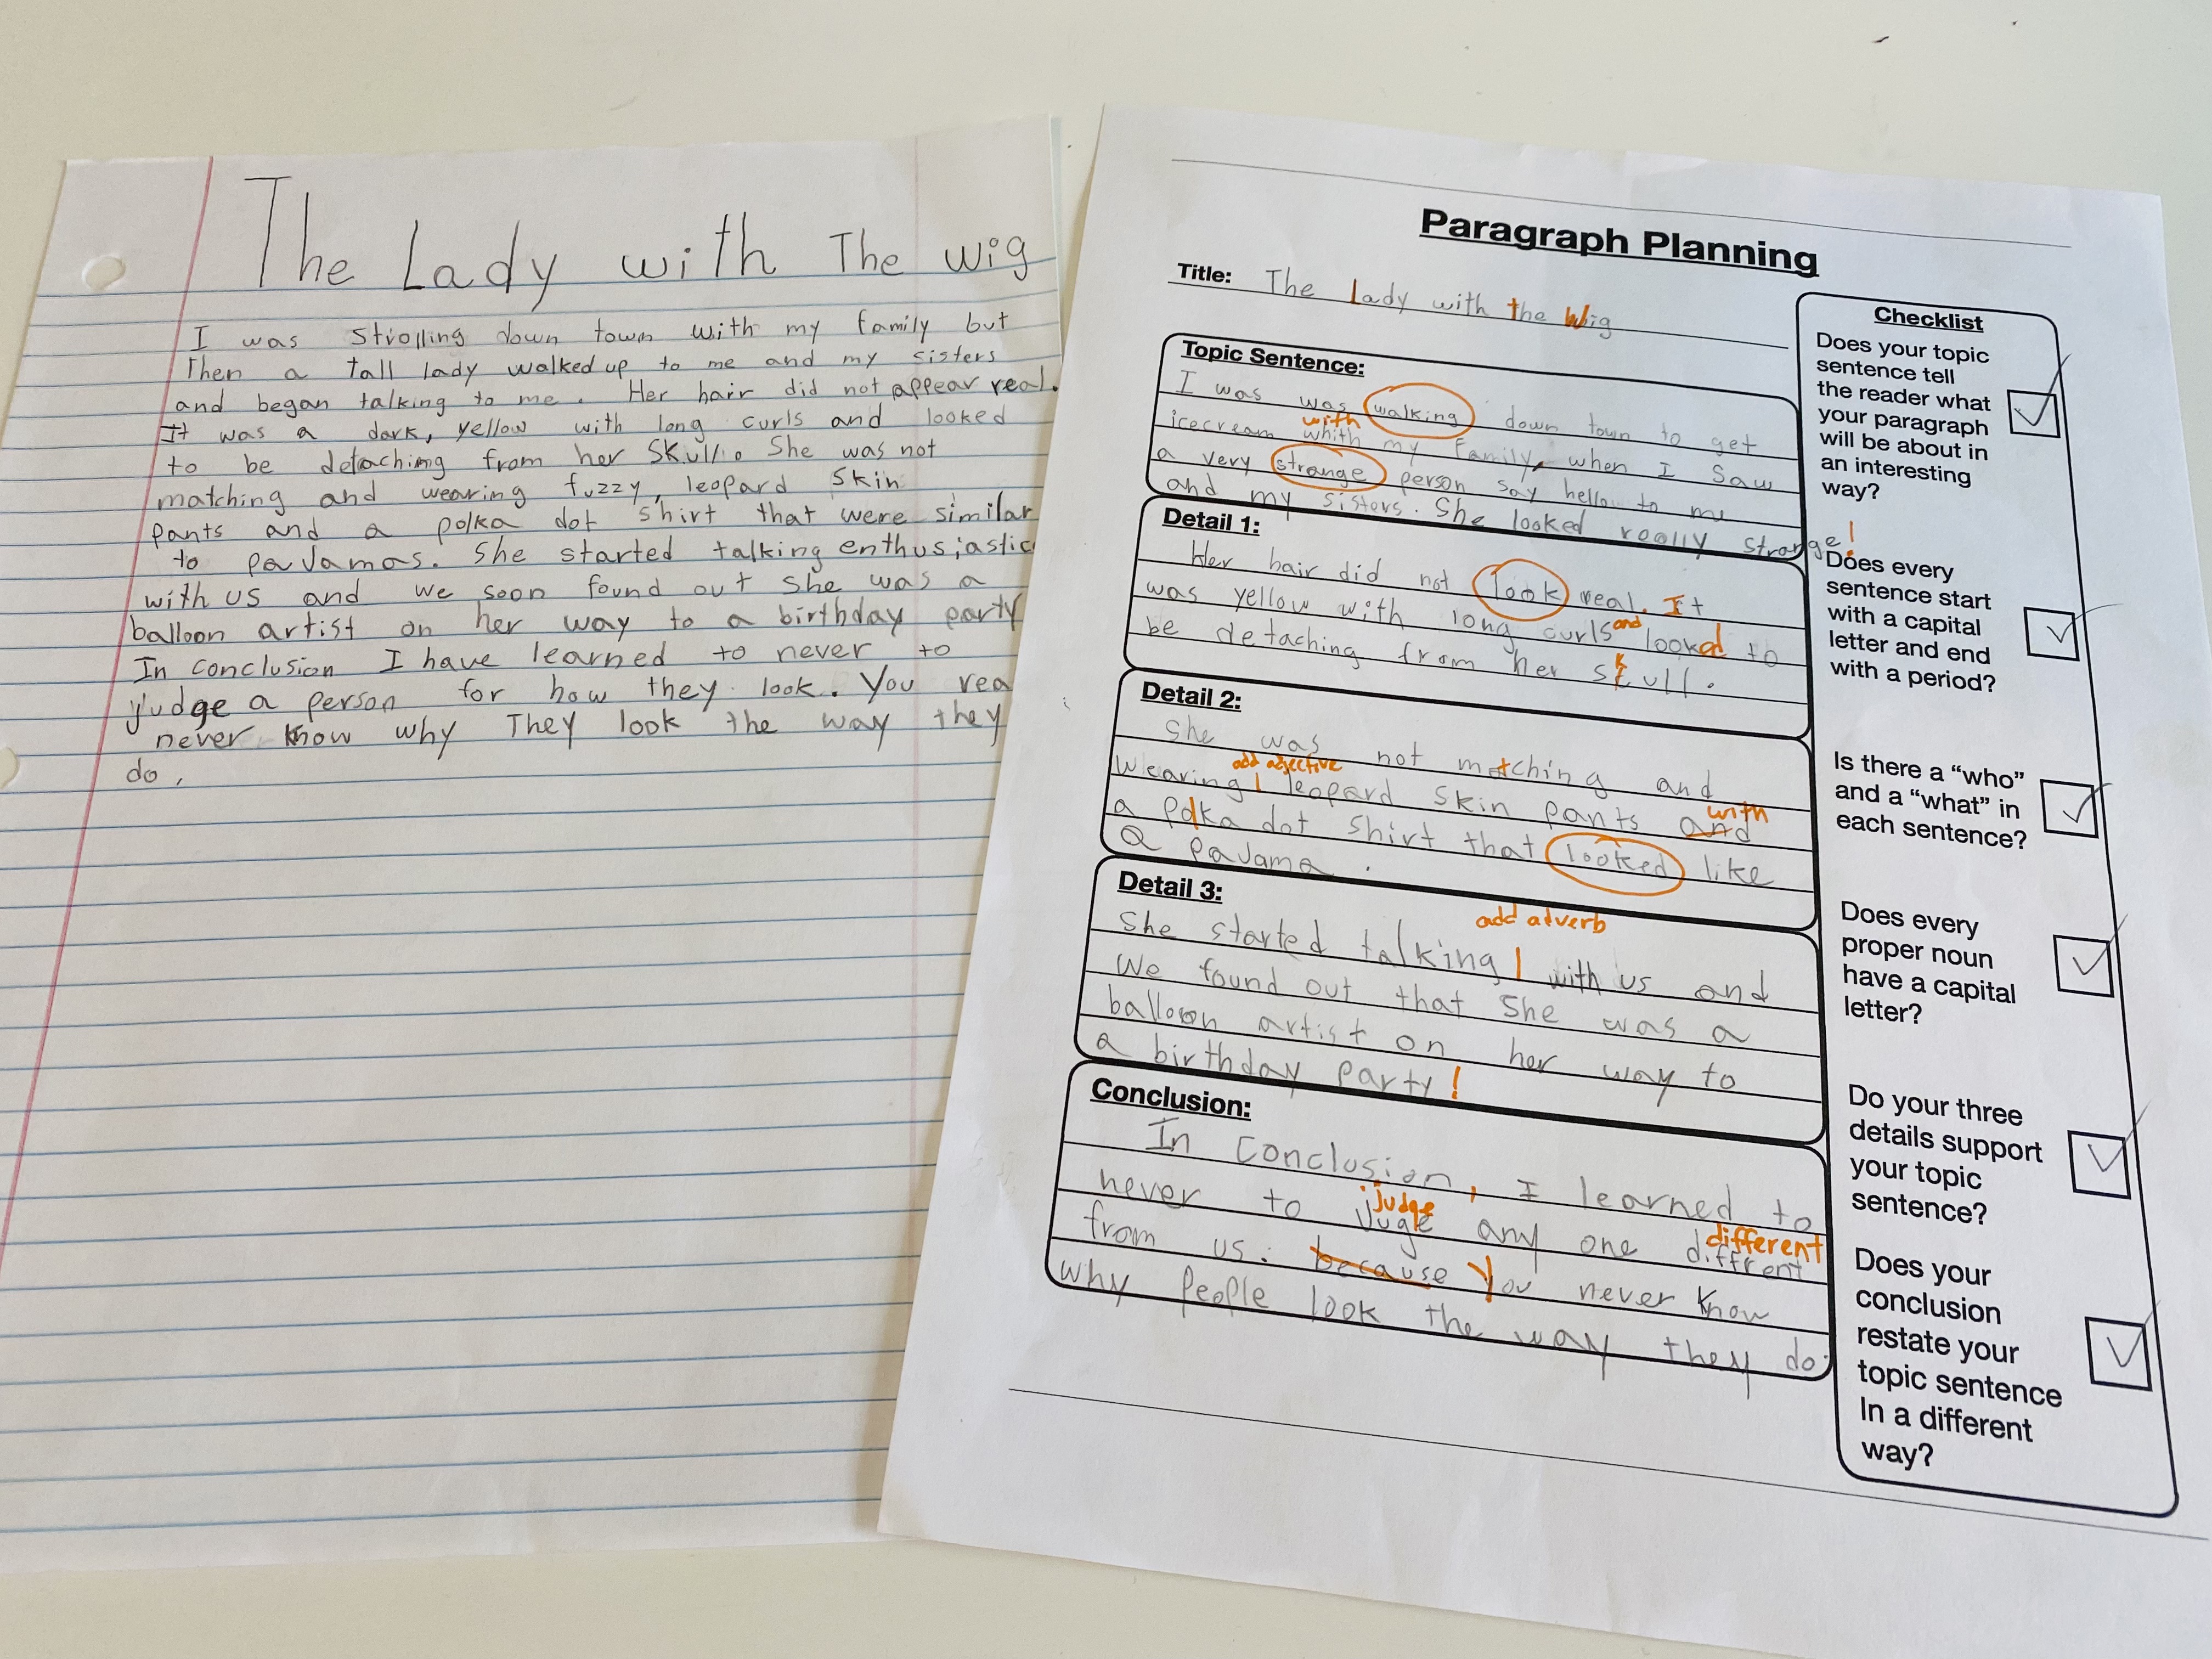 The Lady with The wig
I was Strolling down town with my family but
Then a tall lady walked up to me and my sisters
and began talking to me. Her hair did not appear real.
It was a dark, yellow with long curls and looked
to be detaching from her Skull. She was not
matching and wearing fuzzy, leopard skin
pants and a polka dot shirt that were similar
to paJamas. She started talking enthusiastic
with us and we soon found out she was a
balloon artist on her way to a birthday party
In conclusion I have learned to never to
judge a person for how they look. You rea
never know why They look the way they
do.
Paragraph Planning
Title: The Lady with the Wig
Topic Sentence:
I was was walking down town to get
with
icecream whith my Family, when I Saw
a very strange person say hellow to me
and my sisters. She looked really strange!
Detail 1:
Her hair did not look real. It
was yellow with long curls and looked to
be detaching from her skull.
Detail 2:
She was not matching and
add adjective
wearing | leopard skin pants and
with
a polka dot shirt that looked like
a paJama.
Detail 3:
add adverb
She started talking | with us and
We found out that She was a
balloon artist on her way to
a birthday party!
Conclusion:
In conclusion, I learned to
judge
never to jugle any one diffrent
different
from us. because You never know
why people look the way they do.
Checklist
Does your topic
sentence tell
the reader what
your paragraph
will be about in
an interesting
way?
Does every
sentence start
with a capital
letter and end
with a period?
Is there a “who”
and a “what” in
each sentence?
Does every
proper noun
have a capital
letter?
Do your three
details support
your topic
sentence?
Does your
conclusion
restate your
topic sentence
In a different
way?